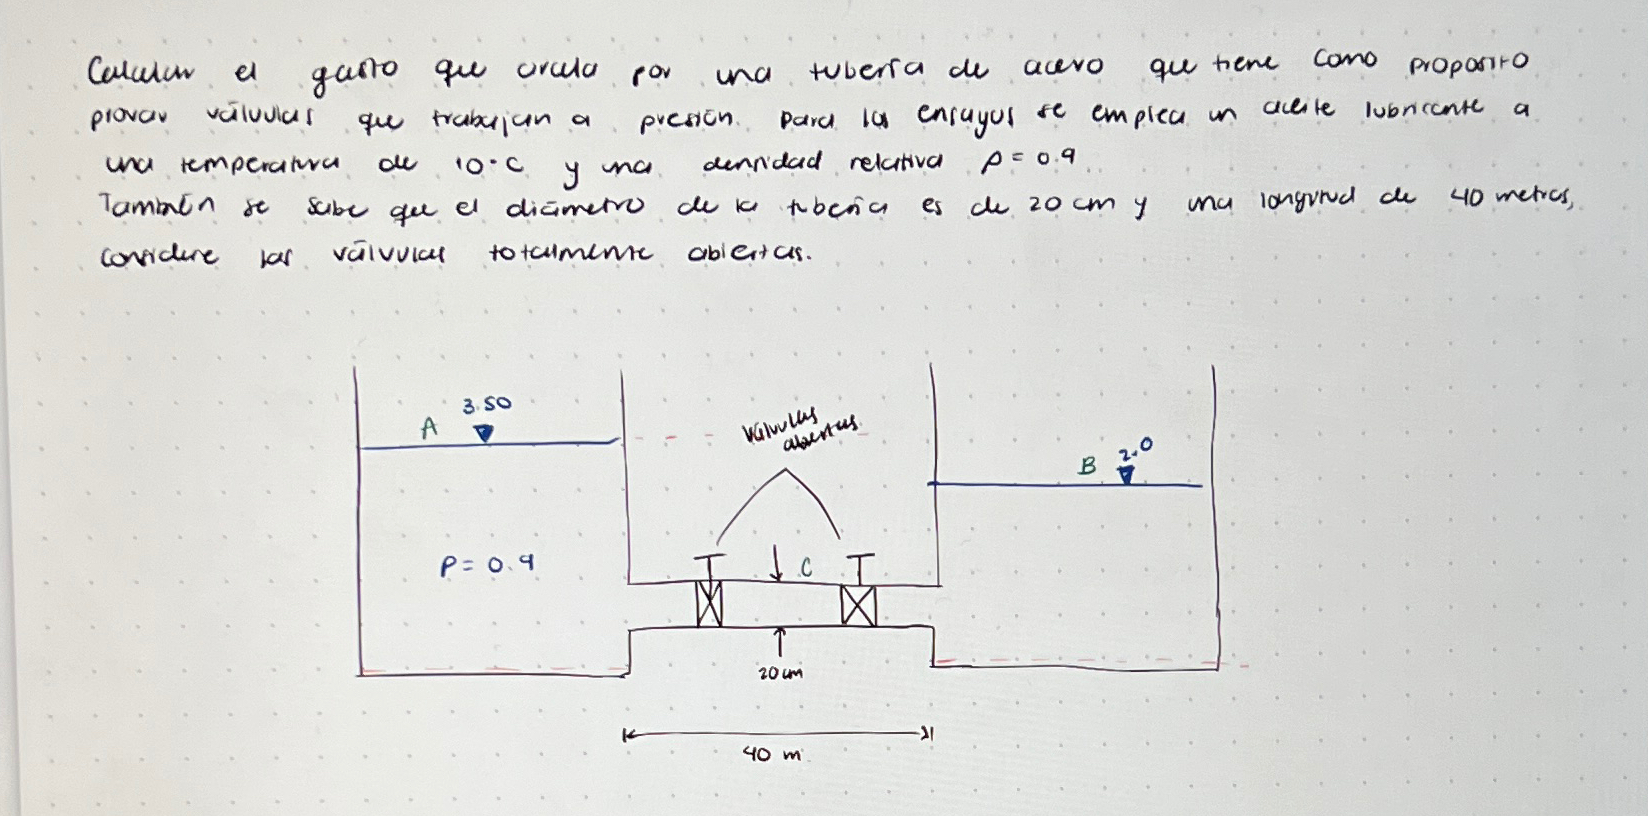 Calcular el gasto que circula por una tubería de acero que tiene como proposito
provar válvulas que trabajan a presión. Para los ensayos se emplea un aceite lubricante a
una temperatura de 10°C y una densidad relativa ρ = 0.9.
También se sabe que el diámetro de la tubería es de 20 cm y una longitud de 40 metros,
considere las válvulas totalmente abiertas.
3.50
A
válvulas
abiertas
2.0
B
ρ = 0.9
C
20 cm
40 m